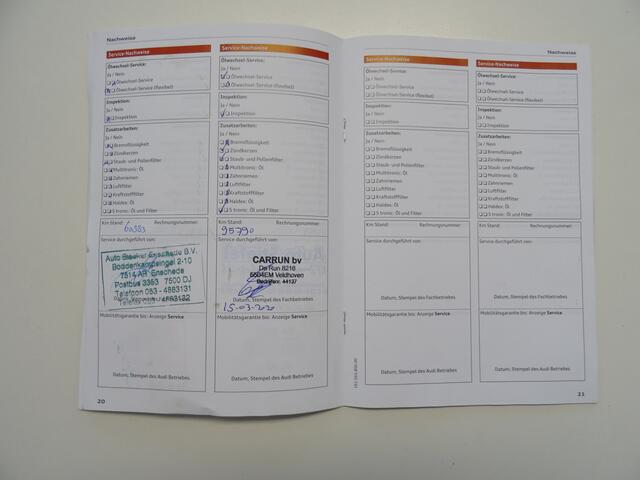 Nachweise
Service-Nachweise
Ölwechsel-Service:
Ja / Nein
Ölwechsel-Service
Ölwechsel-Service (flexibel)
Inspektion:
Ja / Nein
Inspektion
Zusatzarbeiten:
Ja / Nein
Bremsflüssigkeit
Zündkerzen
Staub- und Pollenfilter
Multitronic: Öl
Zahnriemen
Luftfilter
Kraftstofffilter
Haldex: Öl
S tronic: Öl und Filter
Km Stand: Rechnungsnummer:
60383
Service durchgeführt von:
Auto Bleeker Enschede B.V.
7514 AR Enschede
Postbus 3363 7500 DJ
Telefoon 053 - 4883131
4883132
Mobilitätsgarantie bis: Anzeige Service
Datum, Stempel des Audi Betriebes
20
Service-Nachweise
Ölwechsel-Service:
Ja / Nein
Ölwechsel-Service
Ölwechsel-Service (flexibel)
Inspektion:
Ja / Nein
Inspektion
Zusatzarbeiten:
Ja / Nein
Bremsflüssigkeit
Zündkerzen
Staub- und Pollenfilter
Multitronic: Öl
Zahnriemen
Luftfilter
Kraftstofffilter
Haldex: Öl
S tronic: Öl und Filter
Km Stand: Rechnungsnummer:
95790
Service durchgeführt von:
CARRUN bv
De Run 8216
5504EM Veldhoven
Bedrijfsnr. 44137
Datum, Stempel des Fachbetriebes
15-03-2020
Mobilitätsgarantie bis: Anzeige Service
Datum, Stempel des Audi Betriebes
Nachweise
Service-Nachweise
Ölwechsel-Service:
Ja / Nein
Ölwechsel-Service
Ölwechsel-Service (flexibel)
Inspektion:
Ja / Nein
Inspektion
Zusatzarbeiten:
Ja / Nein
Bremsflüssigkeit
Zündkerzen
Staub- und Pollenfilter
Multitronic: Öl
Zahnriemen
Luftfilter
Kraftstofffilter
Haldex: Öl
S tronic: Öl und Filter
Km Stand: Rechnungsnummer:
Service durchgeführt von:
Datum, Stempel des Fachbetriebes
Mobilitätsgarantie bis: Anzeige Service
Datum, Stempel des Audi Betriebes
Service-Nachweise
Ölwechsel-Service:
Ja / Nein
Ölwechsel-Service
Ölwechsel-Service (flexibel)
Inspektion:
Ja / Nein
Inspektion
Zusatzarbeiten:
Ja / Nein
Bremsflüssigkeit
Zündkerzen
Staub- und Pollenfilter
Multitronic: Öl
Zahnriemen
Luftfilter
Kraftstofffilter
Haldex: Öl
S tronic: Öl und Filter
Km Stand: Rechnungsnummer:
Service durchgeführt von:
Datum, Stempel des Fachbetriebes
Mobilitätsgarantie bis: Anzeige Service
Datum, Stempel des Audi Betriebes
21